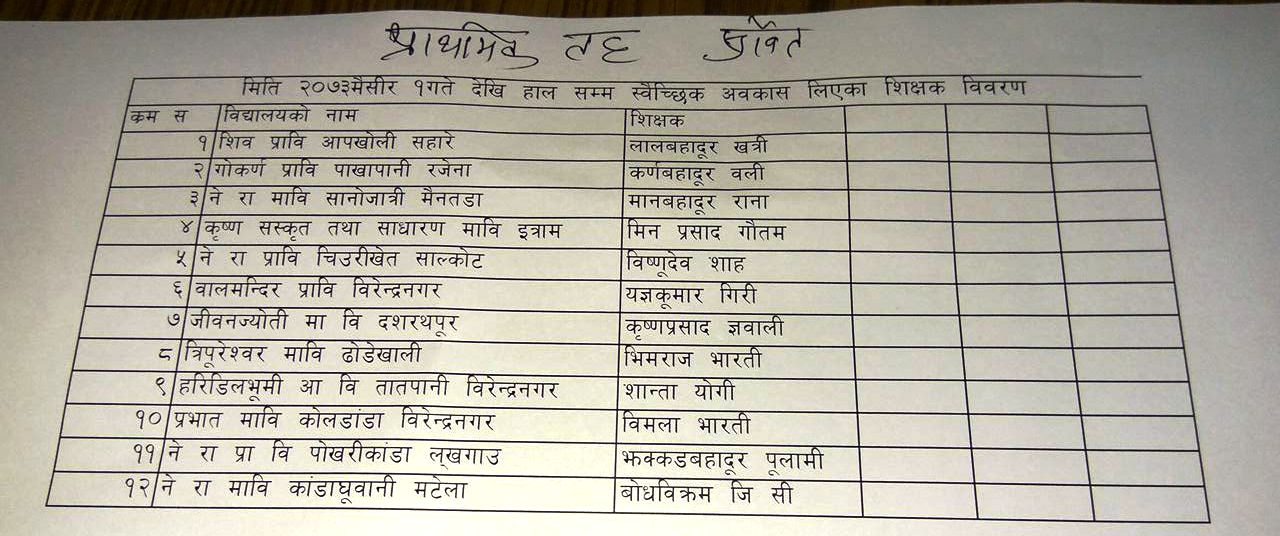 प्राथमिक तह
मिति २०७३मैसीर १गते देखि हाल सम्म स्वैच्छिक अवकास लिएका शिक्षक विवरण
क्रम स विद्यालयको नाम शिक्षक
१ शिव प्रावि आपखोली सहारे लालबहादूर खत्री
२ गोकर्ण प्रावि पाखापानी रजेना कर्णबहादूर वली
३ ने रा मावि सानोजात्री मैनतडा मानबहादूर राना
४ कृष्ण सस्कृत तथा साधारण मावि इत्राम मिन प्रसाद गौतम
५ ने रा प्रावि चिउरीखेत साल्कोट विष्णूदेव शाह
६ वालमन्दिर प्रावि विरेन्द्रनगर यज्ञकूमार गिरी
७ जीवनज्योती मा वि दशरथपूर कृष्णप्रसाद ज्ञवाली
८ त्रिपूरेश्वर मावि ढोडेखाली भिमराज भारती
९ हरिडिलभूमी आ वि तातपानी विरेन्द्रनगर शान्ता योगी
१० प्रभात मावि कोलडांडा विरेन्द्रनगर विमला भारती
११ ने रा प्रा वि पोखरीकांडा ल्खगाउ झक्कडबहादूर पूलामी
१२ ने रा मावि कांडाघूवानी मटेला बोधविक्रम जि सी